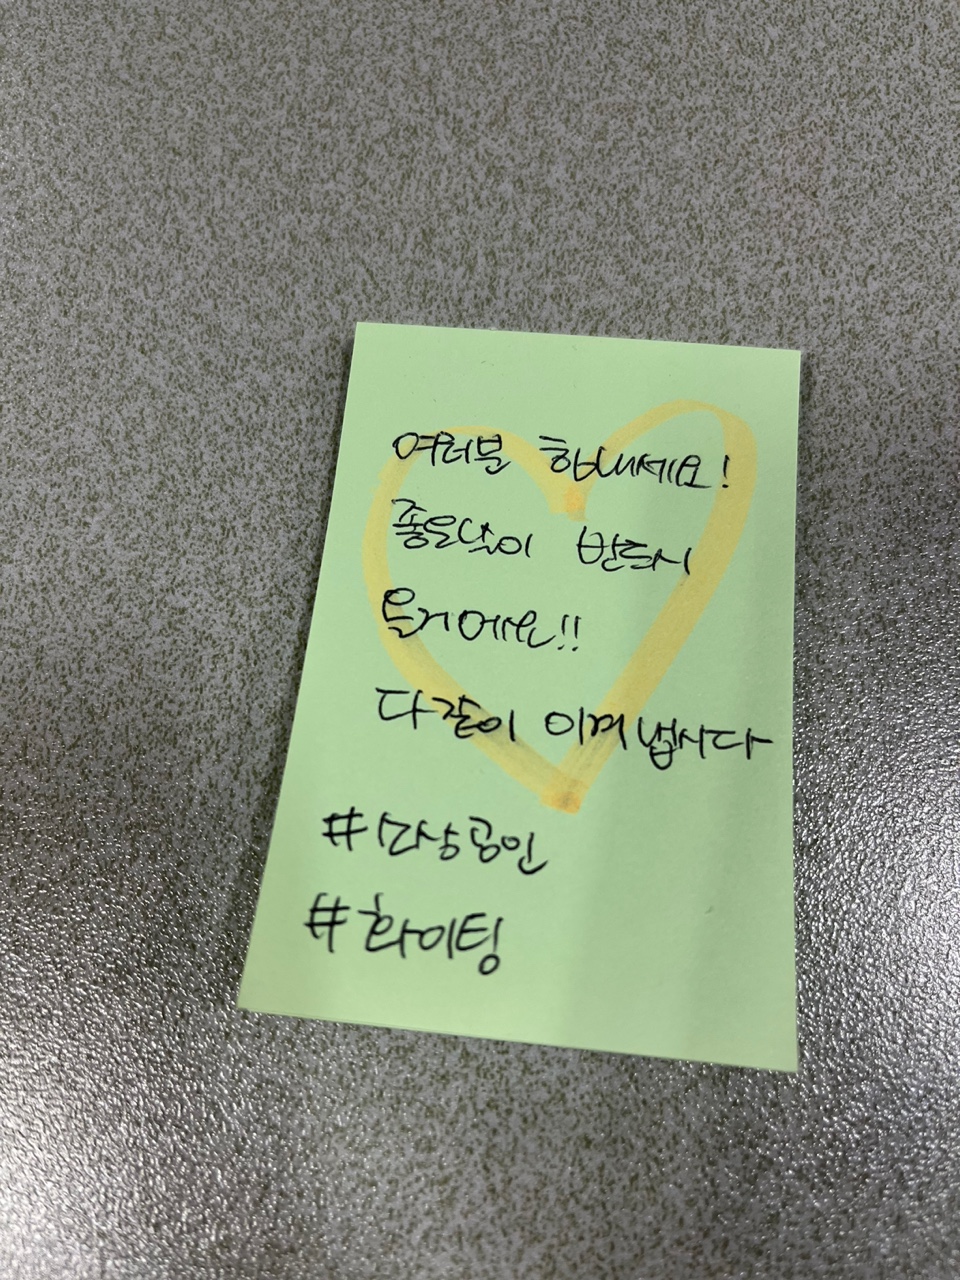 여러분 힘내세요!
좋은날이 반드시
올거에요!!
다같이 이겨냅시다
#소상공인
#화이팅